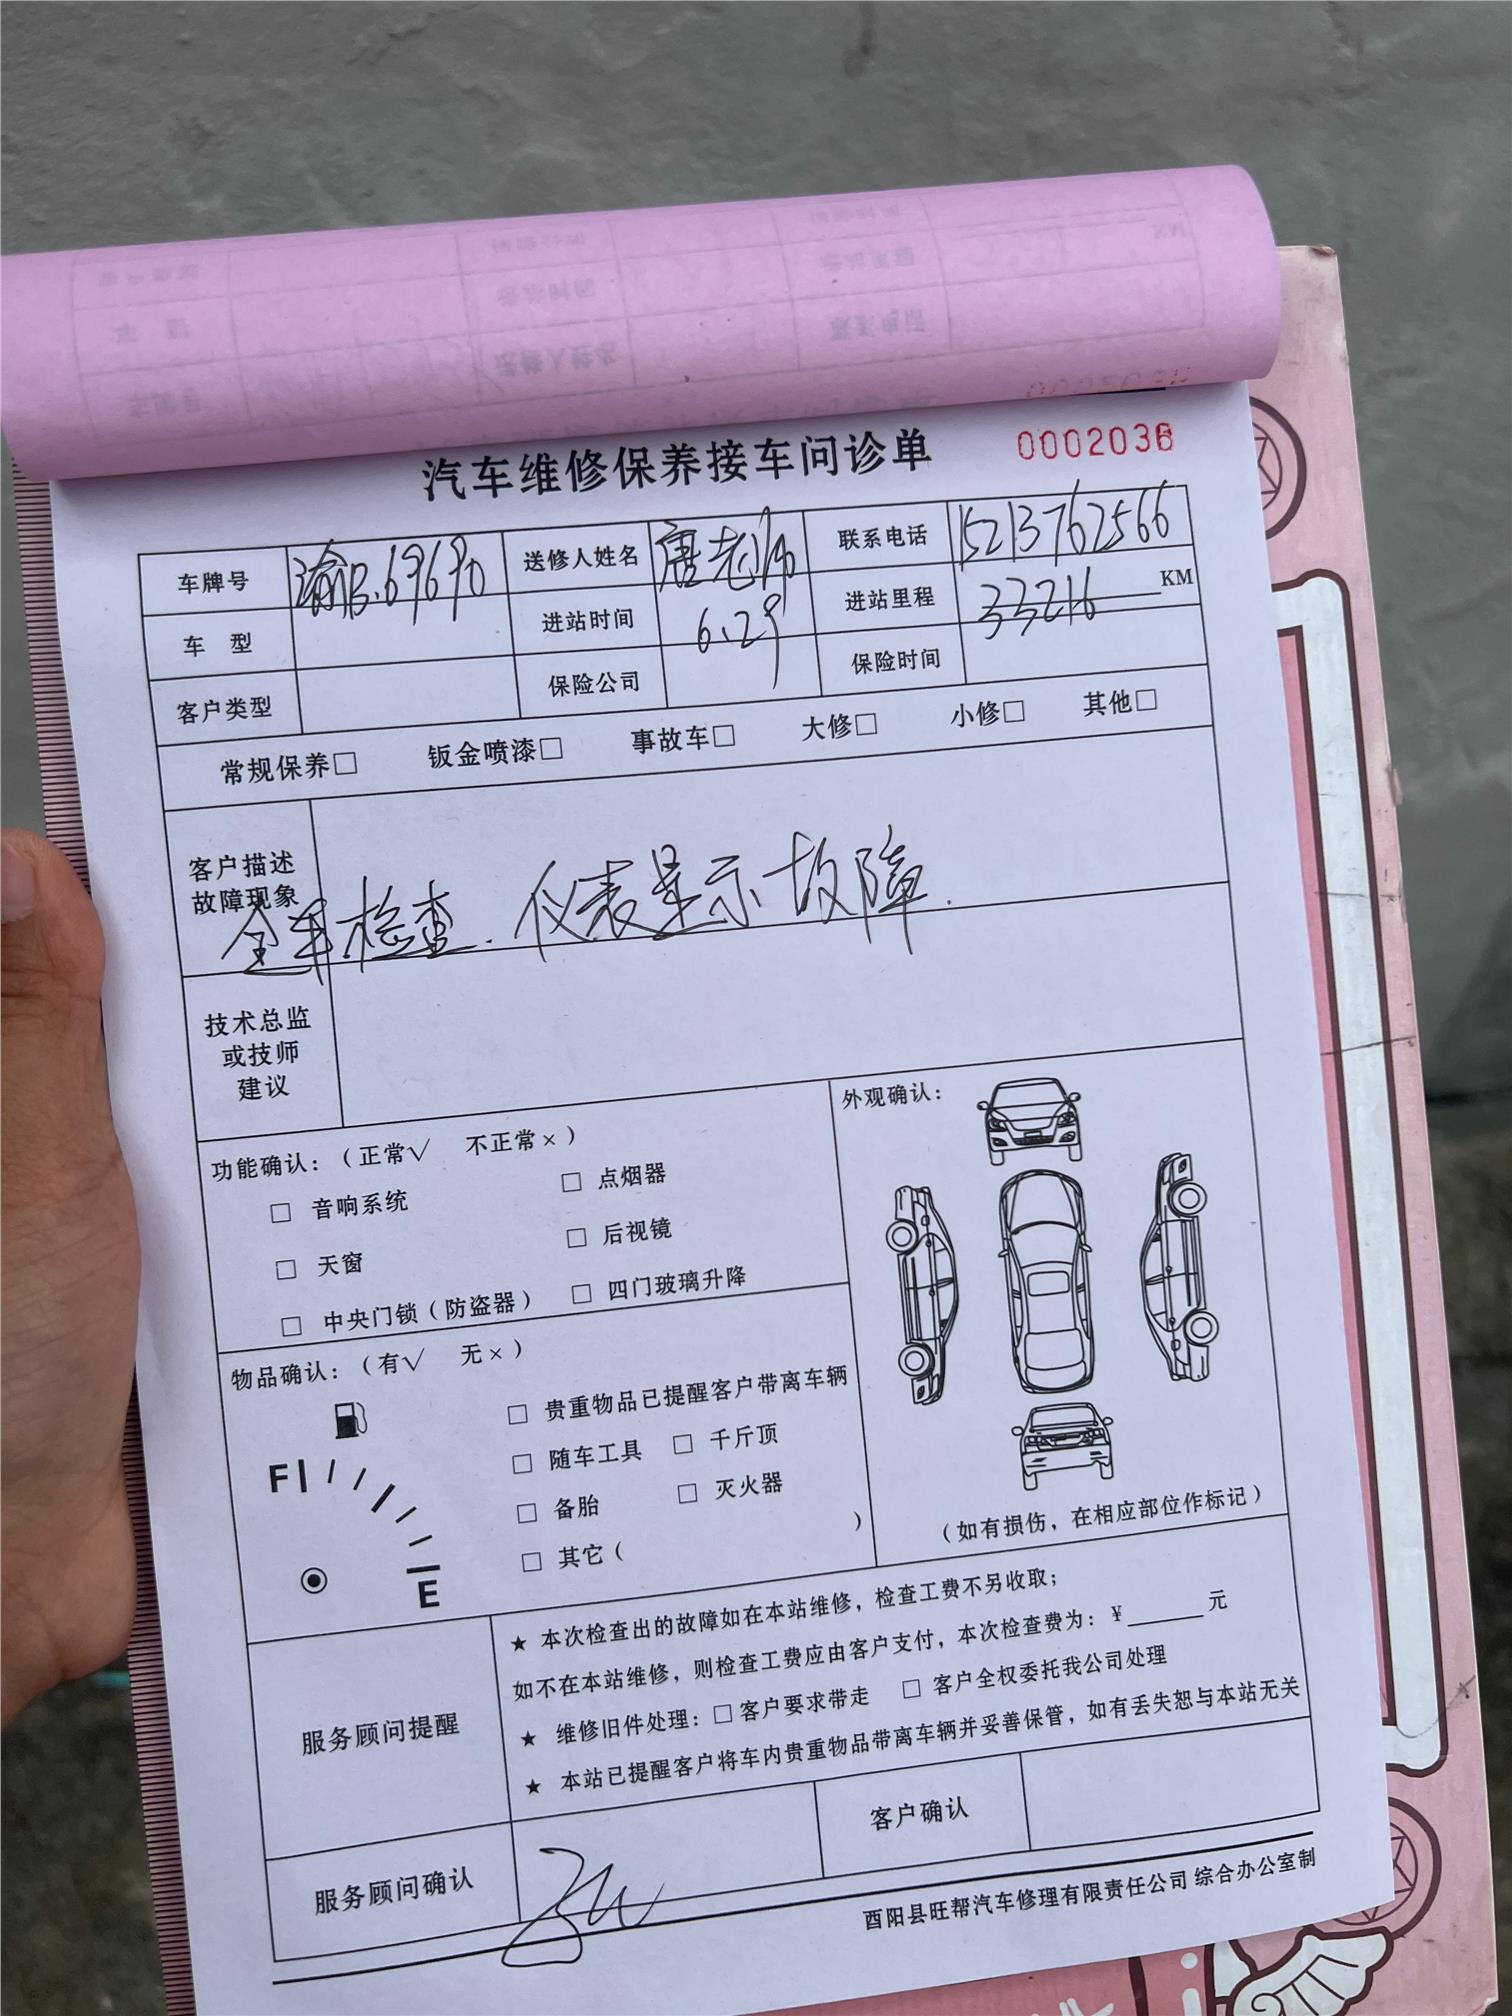 汽车维修保养接车问诊单 0002036
车牌号 送修人姓名 唐老师 联系电话 15213762566
车 型 进站时间 6.29 进站里程 33216 KM
客户类型 保险公司 保险时间
常规保养□ 钣金喷漆□ 事故车□ 大修□ 小修□ 其他□
客户描述
故障现象
全车检查.仪表显示故障.
技术总监
或技师
建议
功能确认：（正常√ 不正常×）
□ 音响系统 □ 点烟器
□ 天窗 □ 后视镜
□ 中央门锁（防盗器） □ 四门玻璃升降
外观确认：
（如有损伤，在相应部位作标记）
物品确认：（有√ 无×）
□ 贵重物品已提醒客户带离车辆
□ 随车工具 □ 千斤顶
□ 备胎 □ 灭火器
□ 其它（ ）
F
E
服务顾问提醒
★ 本次检查出的故障如在本站维修，检查工费不另收取；
如不在本站维修，则检查工费应由客户支付，本次检查费为：¥______元
★ 维修旧件处理：□客户要求带走 □ 客户全权委托我公司处理
★ 本站已提醒客户将车内贵重物品带离车辆并妥善保管，如有丢失恕与本站无关
服务顾问确认 客户确认
酉阳县旺帮汽车修理有限责任公司 综合办公室制